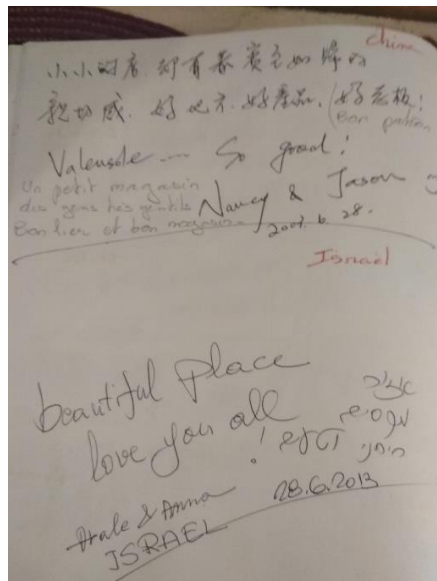 China
小小的店,却有着宾至如归的
親切感,好地方,好產品,(好老板!
Bon patron
Valensole ---- So good!
Un petit magasin
des gens très gentils
Bon lieu et bon magasin.
Nancy & Jason
28.
Israël
beautiful Place
love you all!
28.6.2013
& Anna
ISRAEL